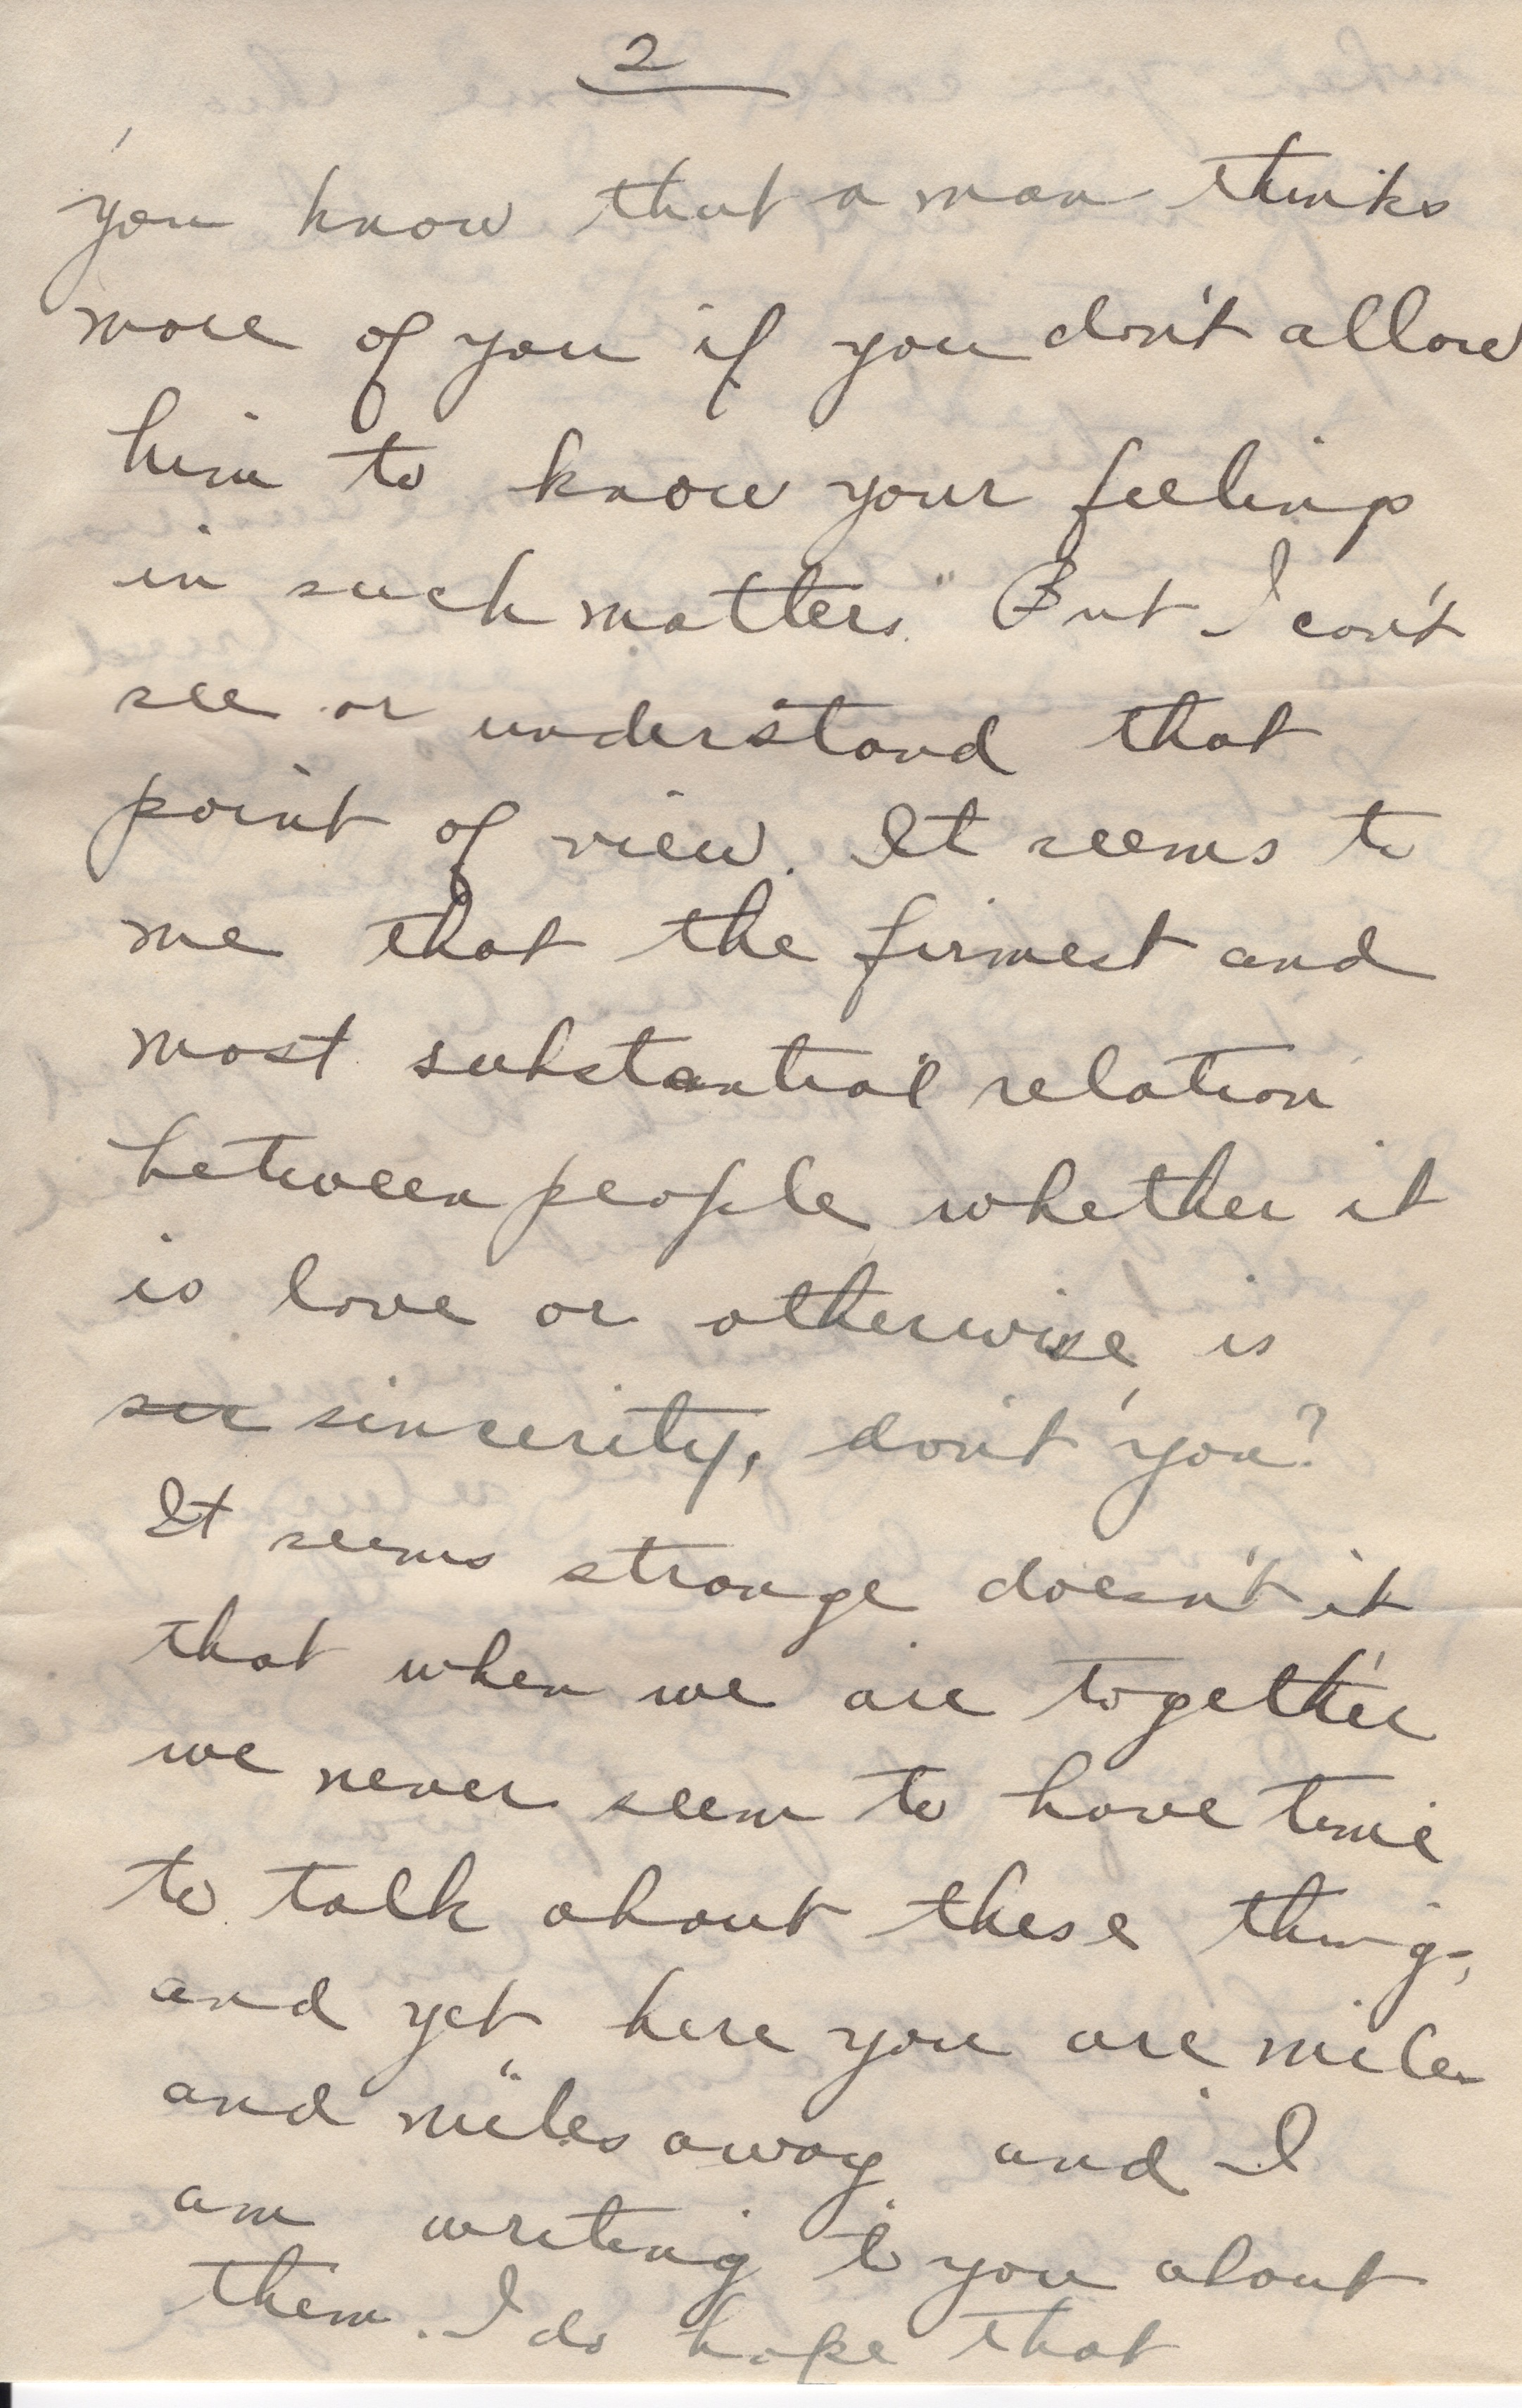 2
you know that a man thinks
more of you if you don't allow
him to know your feelings
in such matters." But I can't
see or understand that
point of view. It seems to
me that the firmest and
most substantial relation
between people whether it
is love or otherwise, is
sin sincerity, don't you?
It seems strange doesn't it
that when we are together
we never seem to have time
to talk about these things,
and yet here you are miles
and miles away and I
am writing to you about
them. I do hope that